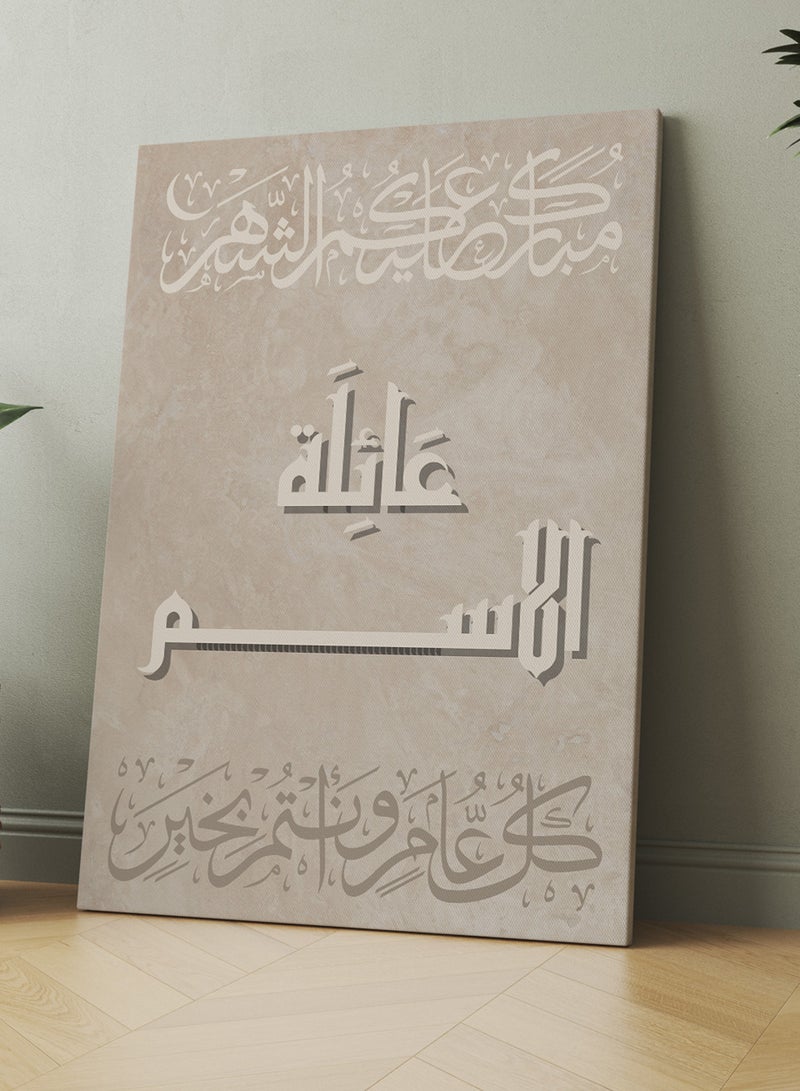 مُبَارَك عَلَيْكُم الشَّهْر
عَائِلَة
الاسم
كُلُّ عَامٍ وَأَنْتُمْ بِخَيْرٍ